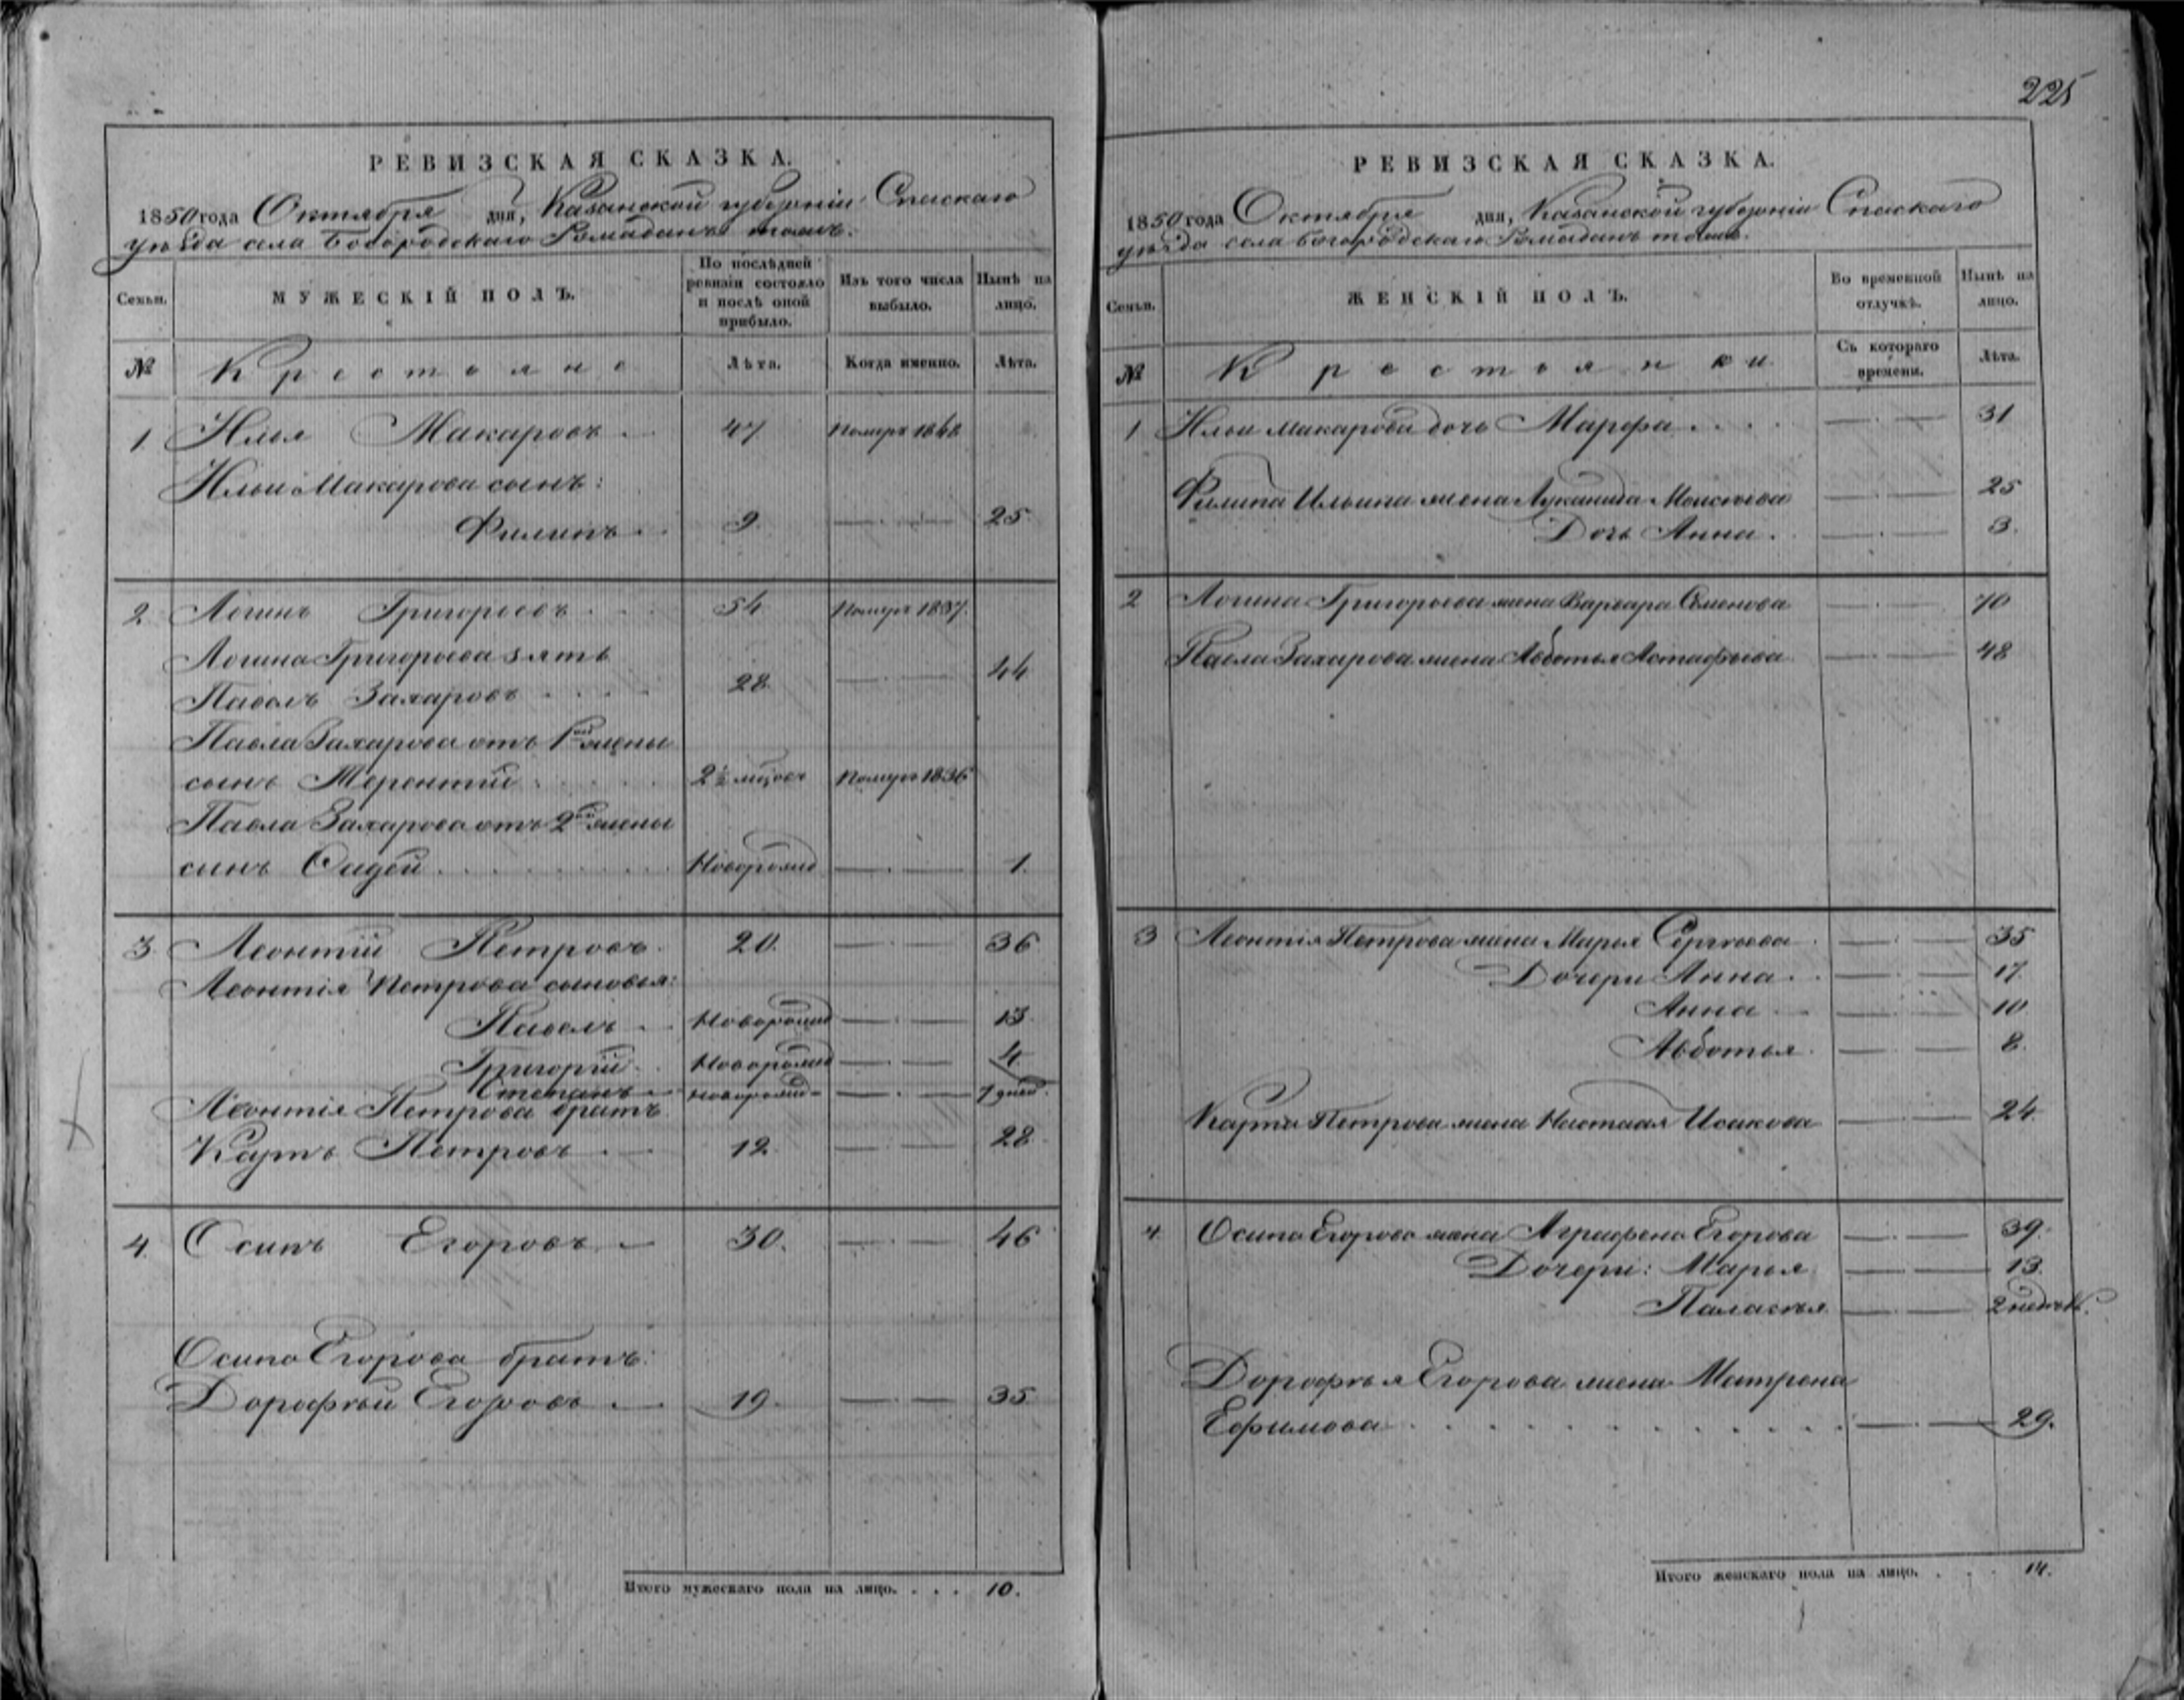 225
РЕВИЗСКАЯ СКАЗКА.
1850 года Октября дня, Казанской губерніи Спаскаго
уѣзда села Богородскаго Ромаданъ тожъ.
Семьи.
МУЖЕСКІЙ ПОЛЪ.
По послѣдней ревизіи состояло и послѣ оной прибыло.
Изъ того числа выбыло.
Нынѣ на лицо.
№ Крестьяне Лѣта. Когда именно. Лѣта.
1. Илья Макаровъ 47 Померъ
Ильи Макарова сынъ:
Филипъ 9. 25.
2. Логинъ Григорьевъ 54 Померъ 1837.
Логина Григорьева зять
Павелъ Захаровъ 28. 44
Павла Захарова отъ 1ой жены
сынъ Терентій 2½ мѣсяц Померъ 1836
Павла Захарова отъ 2ой жены
сынъ Фадей Новорожд 1.
3. Леонтій Петровъ 20. 36
Леонтія Петрова сыновья:
Павелъ Новорожд 13.
Григорій Новорожд 4
Степанъ новорожд 7 дней.
Леонтія Петрова братъ
Карпъ Петровъ 12. 28.
4. Осипъ Егоровъ 30. 46
Осипа Егорова братъ:
Дорофѣй Егоровъ 19. 35
Итого мужескаго пола на лицо. . . . 10.
РЕВИЗСКАЯ СКАЗКА.
1850 года Октября дня, Казанской губерніи Спаскаго
уѣзда села Богородскаго Ромаданъ тожъ.
Семьи.
ЖЕНСКІЙ ПОЛЪ.
Во временной отлучкѣ.
Нынѣ на лицо.
№ Крестьянки Съ котораго времени. Лѣта.
1 Ильи Макарова дочь Марфа 31
Филипа Ильина жена Моисѣева 25
Дочь Анна. 3.
2 Логина Григорьева жена Варвара Семенова 70
Павла Захарова жена Авдотья Астафьева 48
3 Леонтія Петрова жена Марья Сергѣева 35
Дочери Анна 17.
Анна 10
Авдотья 8.
Карпа Петрова жена Настасья Исакова 24
4 Осипа Егорова жена Аграфена Егорова 39.
Дочери: Марья 13.
Паласѣя 2 недѣль.
Дорофѣя Егорова жена Матрена
Ефимова 29.
Итого женскаго пола на лицо. . . . 14.